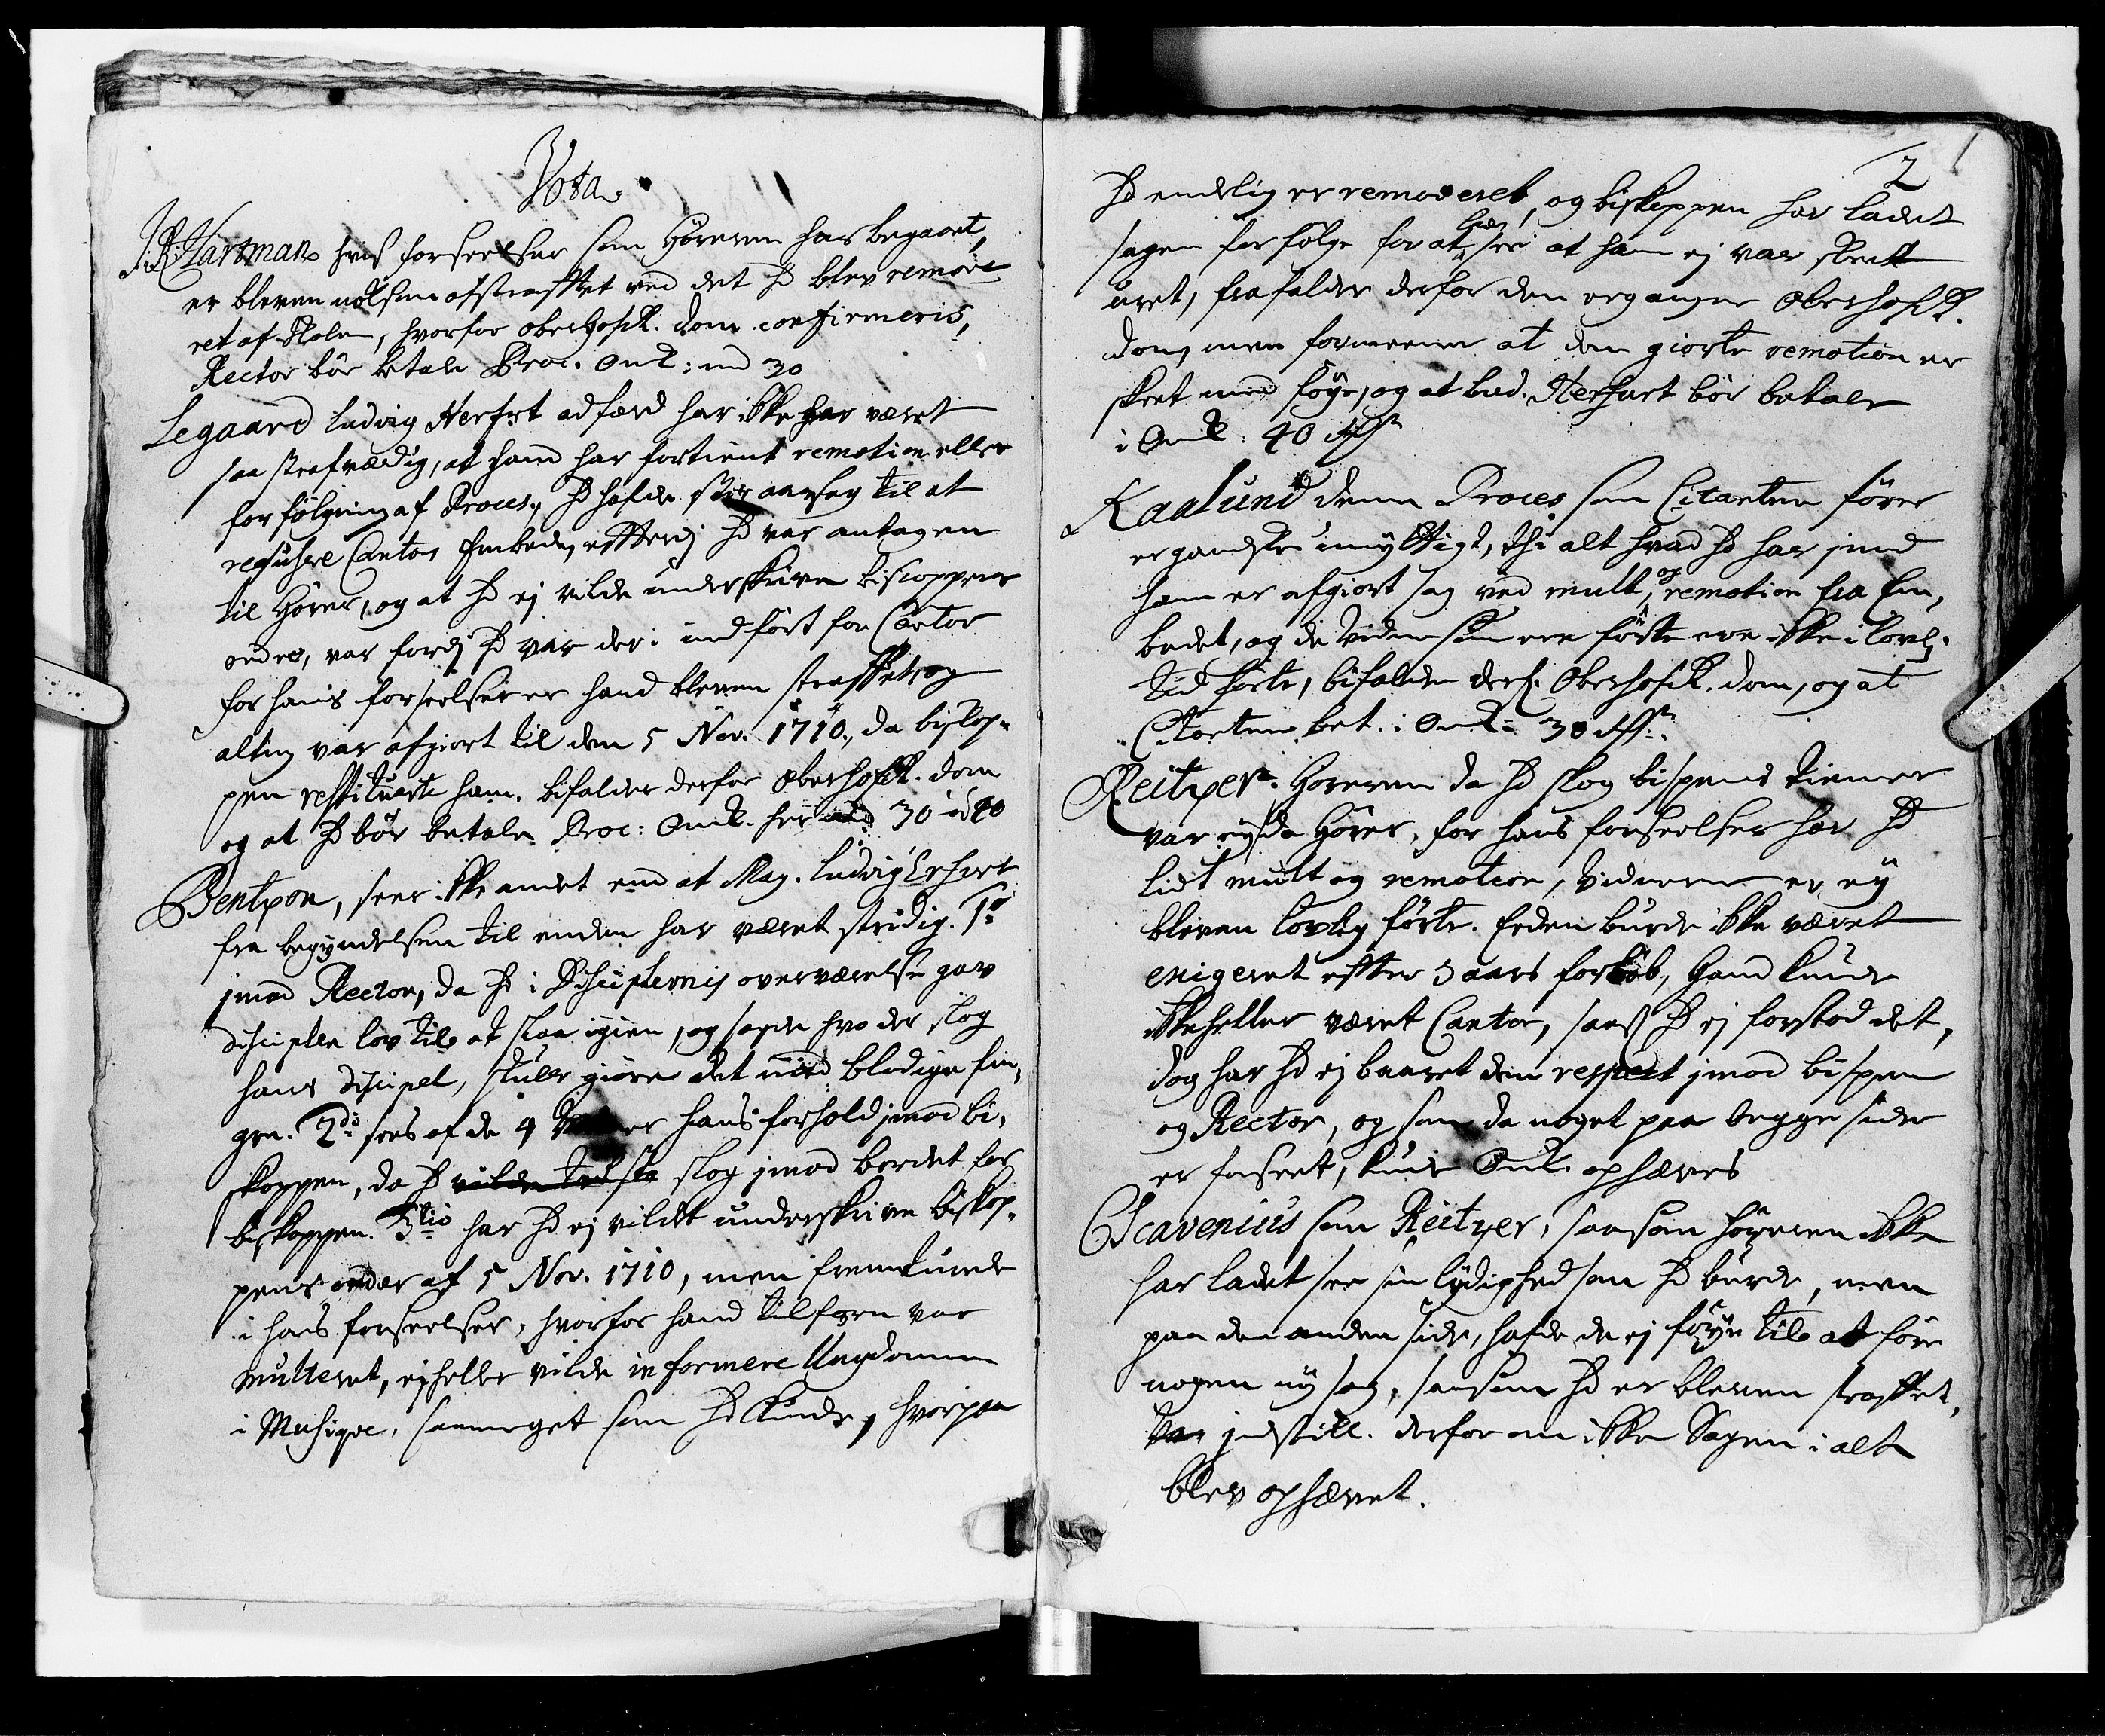 Vota.
J. R. Hartman hvis forseelser som Höreren har begaaet,
er bleven noksom afstraffet ved det hd blev remove
ret af skolen, hvorfor oberhofR. dom confirmeris,
Rector bör betale Proc. Omk: med 30
Legaard Ludvig Herfort adfærd har ikke har været
saa strafværdig, at hand har fortient remotion eller
forfölgning af Proces, hd hafde stor aarsag til at
refusere Cantor Embedet, efftersom hd var antagen
til Hörer, og at hd ej vilde underskrive biscoppens
ordre, var fordj hd var der i indfört for Cantor
for hans forseelser er hand bleven straffet, og
alting var afgiort til den 5 Nov. 1710, da biskop-
pen restituerte ham. bifalder derfor OberhofR. dom
og at hd bör betale Proc: Omk. her med 30 ad 40
Bentzon, seer ikke andet end at Mag. Ludvig Erfort
fra begyndelsen til enden har været stridig. 1o
imod Rector, da hd i Disciplernis overværelse gav
disciplen lov til at slaa igien, og sagde hvo der slog
hans discipel, skulle giöre det med blodige fin-
gre. 2do sees af de 4 hans forhold imod bi-
skoppen, da hd vilde slog imod bordet for
biskoppen. 3tio har hd ej vildet underskrive biskop-
pens order af 5 Nov. 1710, men fremturede
i hans forseelser, hvorfor hand tilforn var
multeret, ej heller vilde informere Ungdommen
i Musiqve, saameget som hd kunde, hvorpaa
2
hd endelig er removeret, og biskoppen har ladet
sagen forfölge for at lade see at ham ej var skeet
uret, frafalder derfor den ergangne OberhofR.
dom, men formeener at den giorte remotion er
skeet med föye, og at Lud. Herfort bör betale
i Omk: 40 Rdr
Kaalund denne Proces som Citanten förer
er gandske unyttigt, thi alt hvad hd har imod
ham er afgiort sag ved mult, og remotion fra Em-
bedet, og de vidner som ere förte ere ikke i lovl.
tid förte, bifalder derf. OberhofR. dom, og at
Citanten bet. i Omk: 30 Rdr.
Reitzer. Höreren da hd slog bispens tiener
var ej da Hörer, for hans forseelser har hd
lidt mult og remotion, Vidnerne er ej
bleven lovlig förte. Eeden burde ikke været
exigeret efter 3 aars forlöb, hand kunde
ikke heller været Cantor, saas hd ej forstod det,
dog har hd ej baaret den respect imod bispen
og Rector, og som da noget paa begge sider
er forseet, kunde Omk. ophæves
Scavenius som Reitzer, saasom höreren ikke
har ladet see sin lydighed som hd burde, men
paa den anden side, hafde de ej föye til at före
nogen ny sag, saasom hd er bleven straffet,
indstill. derfor om ikke Sagen i alt
blev ophævet.